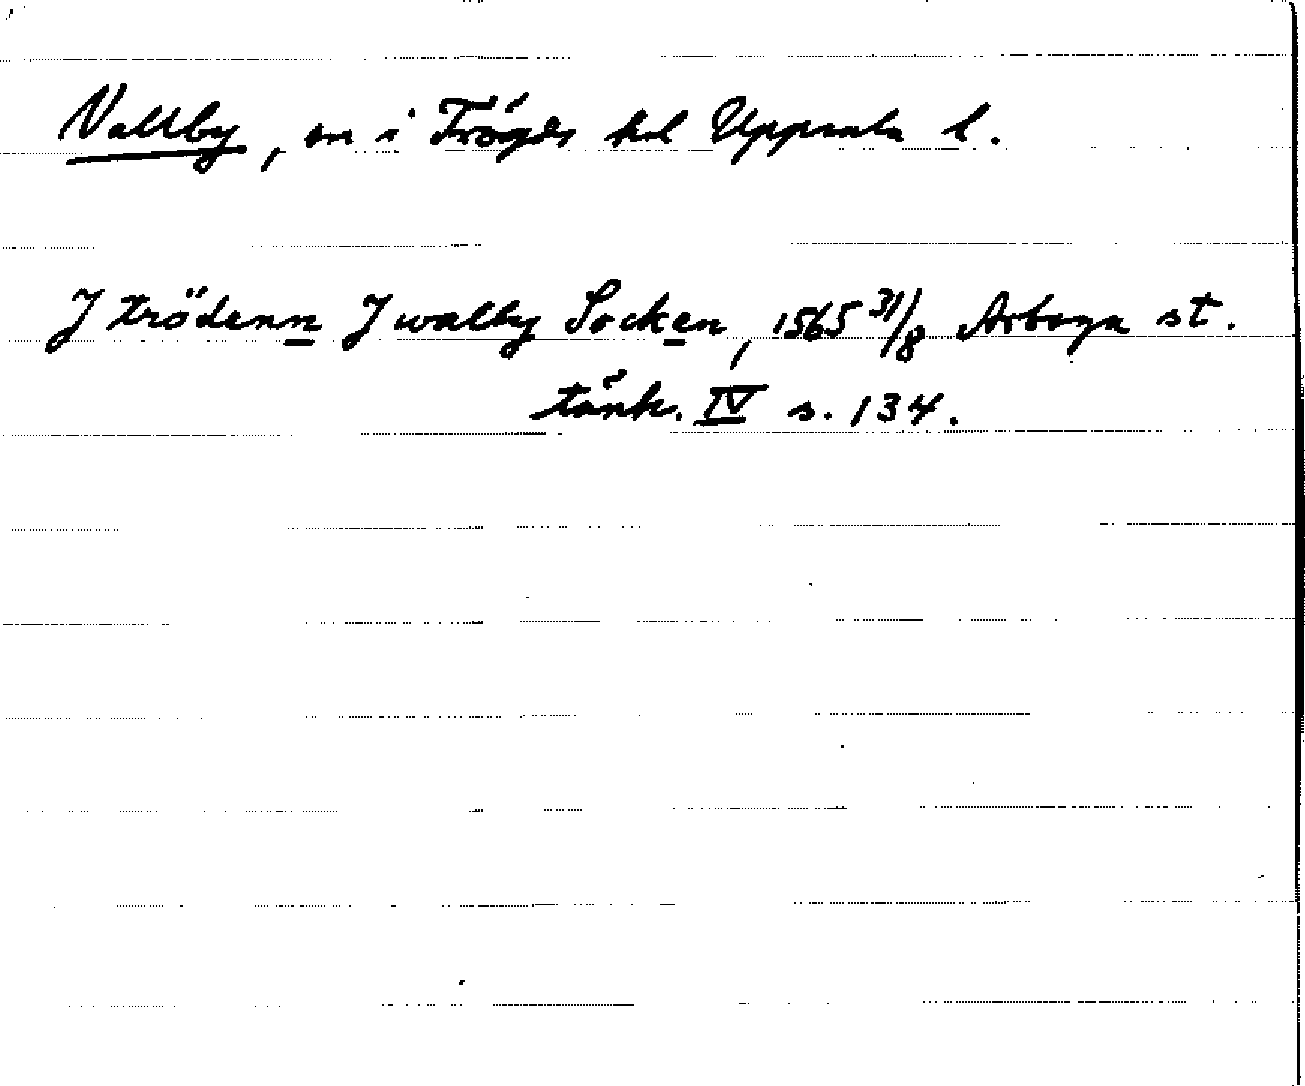 Vallby, sn i Trögds hd Uppsala l.
J trödenn J wallby Socken, 1565 31/8 Arboga st.
tänk. IV s. 134.